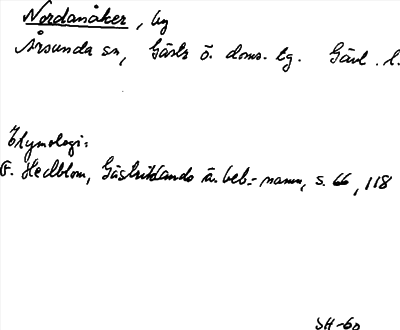 Nordanåker, by
Årsunda sn, Gästr ö. doms. tg. Gävl. l.
Etymologi:
F. Hedblom, Gästriklands ä. beb.- namn, s. 66, 118
SH-60